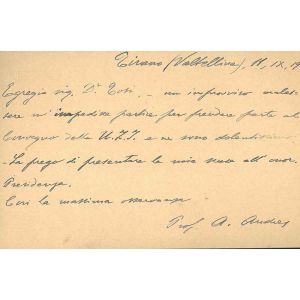 Tirano (Valtellina), 11, IX, 19
Egregio sig. Dr Tosi, - un improvviso males-
sere m'impedisce partire per prendere parte al
Convegno della U.Z.I. e ne sono dolentissimo
- La prego di presentare le mie scuse all'onor.
Presidenza.
Con la massima osservanza
Prof. A. Andres